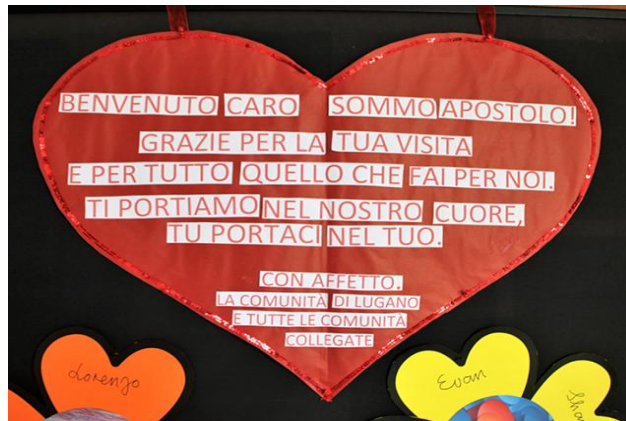 BENVENUTO CARO SOMMO APOSTOLO!
GRAZIE PER LA TUA VISITA
E PER TUTTO QUELLO CHE FAI PER NOI.
TI PORTIAMO NEL NOSTRO CUORE,
TU PORTACI NEL TUO.
CON AFFETTO.
LA COMUNITÀ DI LUGANO
E TUTTE LE COMUNITÀ
COLLEGATE
Lorenzo
Evan